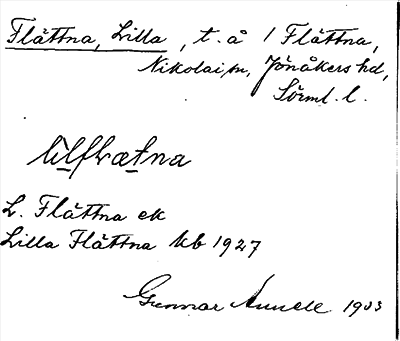 Flättna, Lilla, t. å 1 Flättna,
Nikolai sn, Jönåkers hd,
Sörml. l.
lilflætna
L. Flättna ek
Lilla Flättna kb 1927
Gunnar 1933